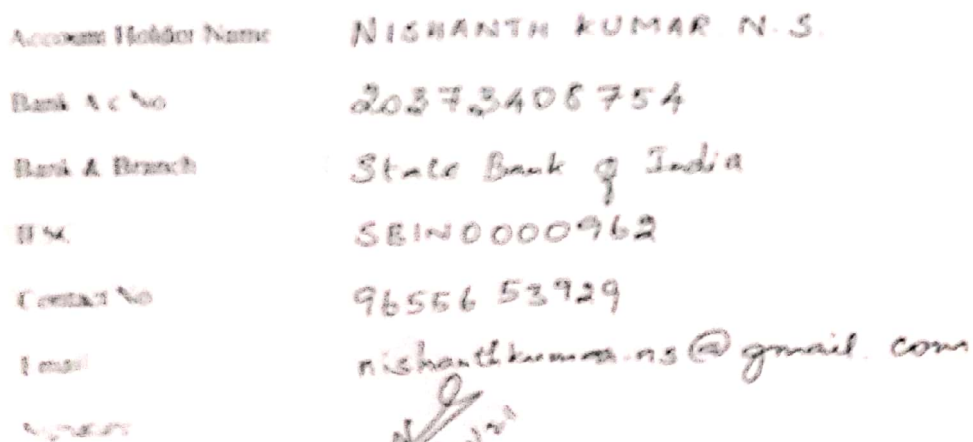 Account Holder Name NISHANTH KUMAR N.S.
Bank A c No 20373408754
Bank & Branch State Bank of India
SBIN0000962
Contact No 96556 53929
Email nishanthkumar.ns@gmail.com